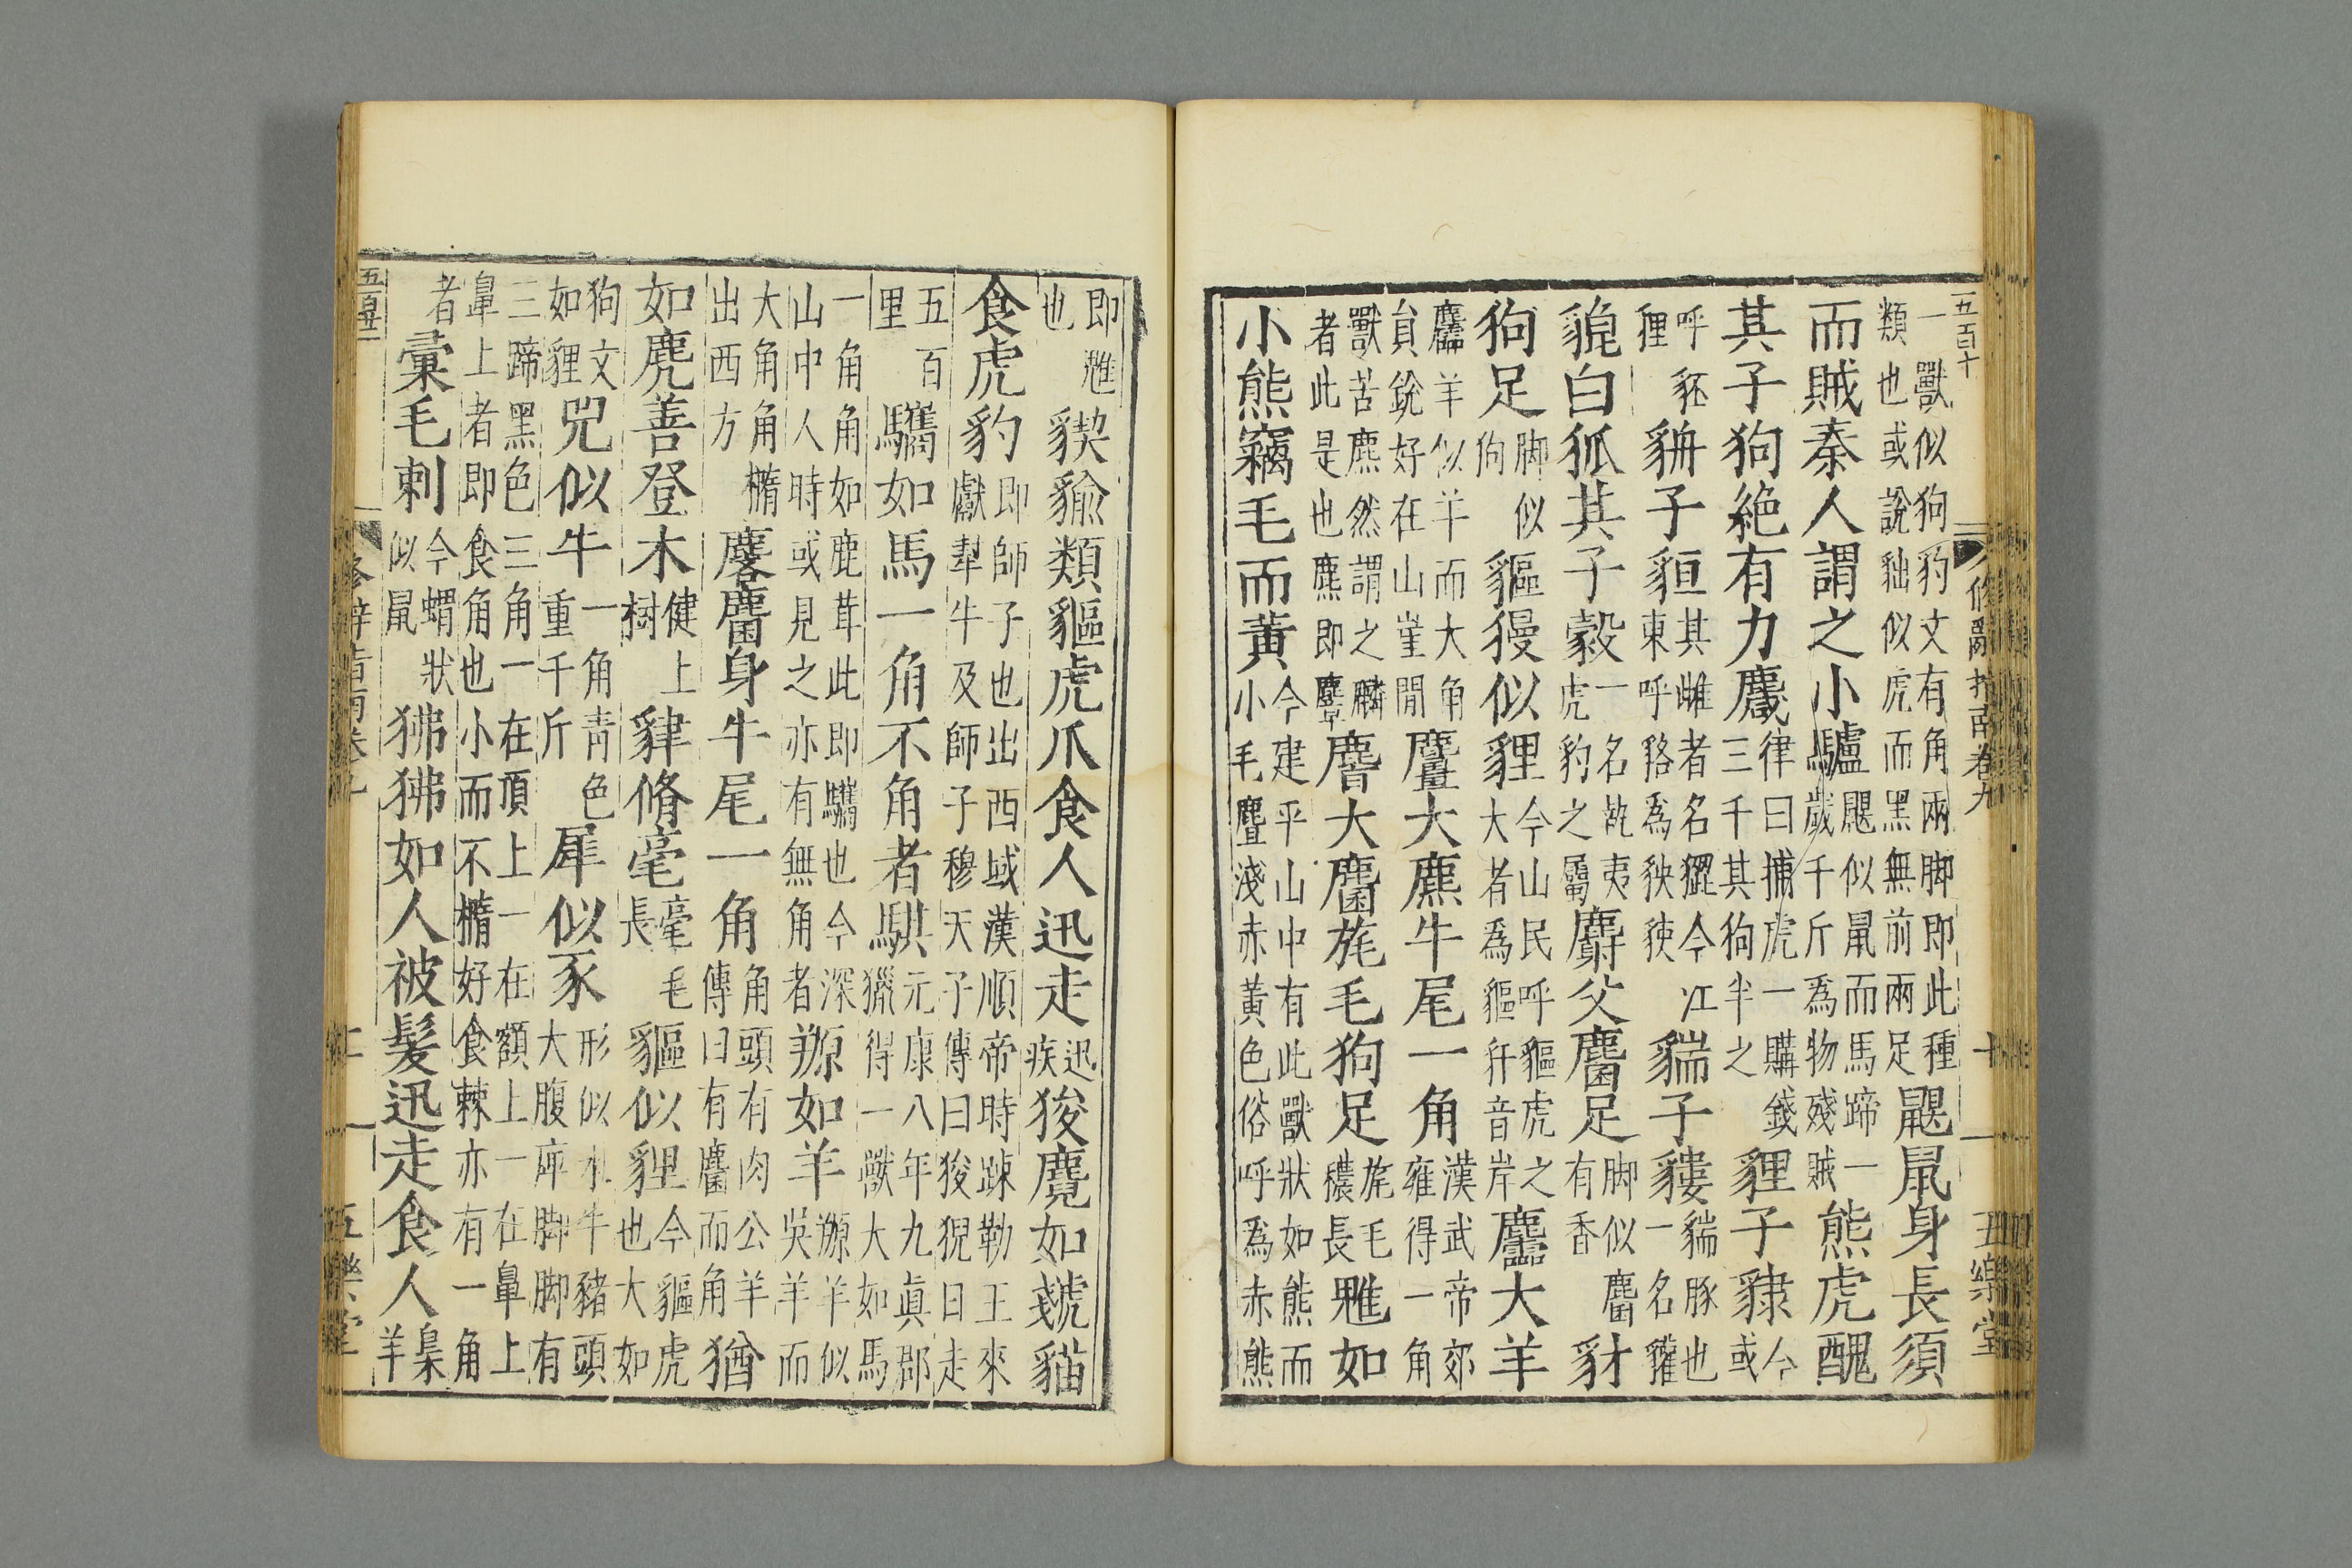 五百十
脩辭指南卷九
十
五樂堂
一獸似狗豹文有角兩脚即此種
類也或說貀似虎而黑無前兩足
鼳鼠身長須
而賊秦人謂之小驢
鼳似鼠而馬蹄一
歲千斤爲物殘賊
熊虎醜
其子狗絶有力麙
律曰捕虎一購錢
三千其狗半之
貍子隸
今
或
呼豾
狸
子貆
其雌者名今江
東呼貉爲
貒子貗
貒豚也
一名貛
貔白狐其子縠
一名執夷
虎豹之屬
麝父麕足
脚似麕
有香
豺
狗足
脚似
狗
貙獌似貍
今山民呼貙虎之
大者爲貙豻音岸
麢大羊
麢羊似羊而大角
貟銳好在山崖閒
麠大麃牛尾一角
漢武帝郊
雍得一角
獸若麃然謂之麟
者此是也麃即麞
大麕旄毛狗足
旄毛
穠長
魋如
小熊竊毛而黃
今建平山中有此獸狀如熊而
小毛麆淺赤黃色俗呼爲赤熊
即魋
也
貐類貙虎爪食人迅走
迅
疾
狻麑如虦貓
食虎豹
即師子也出西域漢順帝時踈勒王來
獻犎牛及師子穆天子傳曰狻猊日走
五百
里
驨如馬一角不角者騏
元康八年九眞郡
獵得一獸大如馬
一角角如鹿茸此即驨也今深
山中人時或見之亦有無角者
羱如羊
羱羊似
吳羊而
大角角橢
出西方
麐麕身牛尾一角
角頭有肉公羊
傳曰有麕而角
猶
如麂善登木
健上
樹
貄脩毫
毫毛
長
貙似貍
今貙虎
也大如
狗文
如貍
兕似牛
一角青色
重千斤
犀似豕
形似水牛豬頭
大腹庳脚脚有
三蹄黑色三角一在頂上一在額上一在鼻上
鼻上者即食角也小而不橢好食棘亦有一角
者
彙毛刺
今蝟狀
似鼠
狒狒如人被髮迅走食人
梟
羊
五樂堂